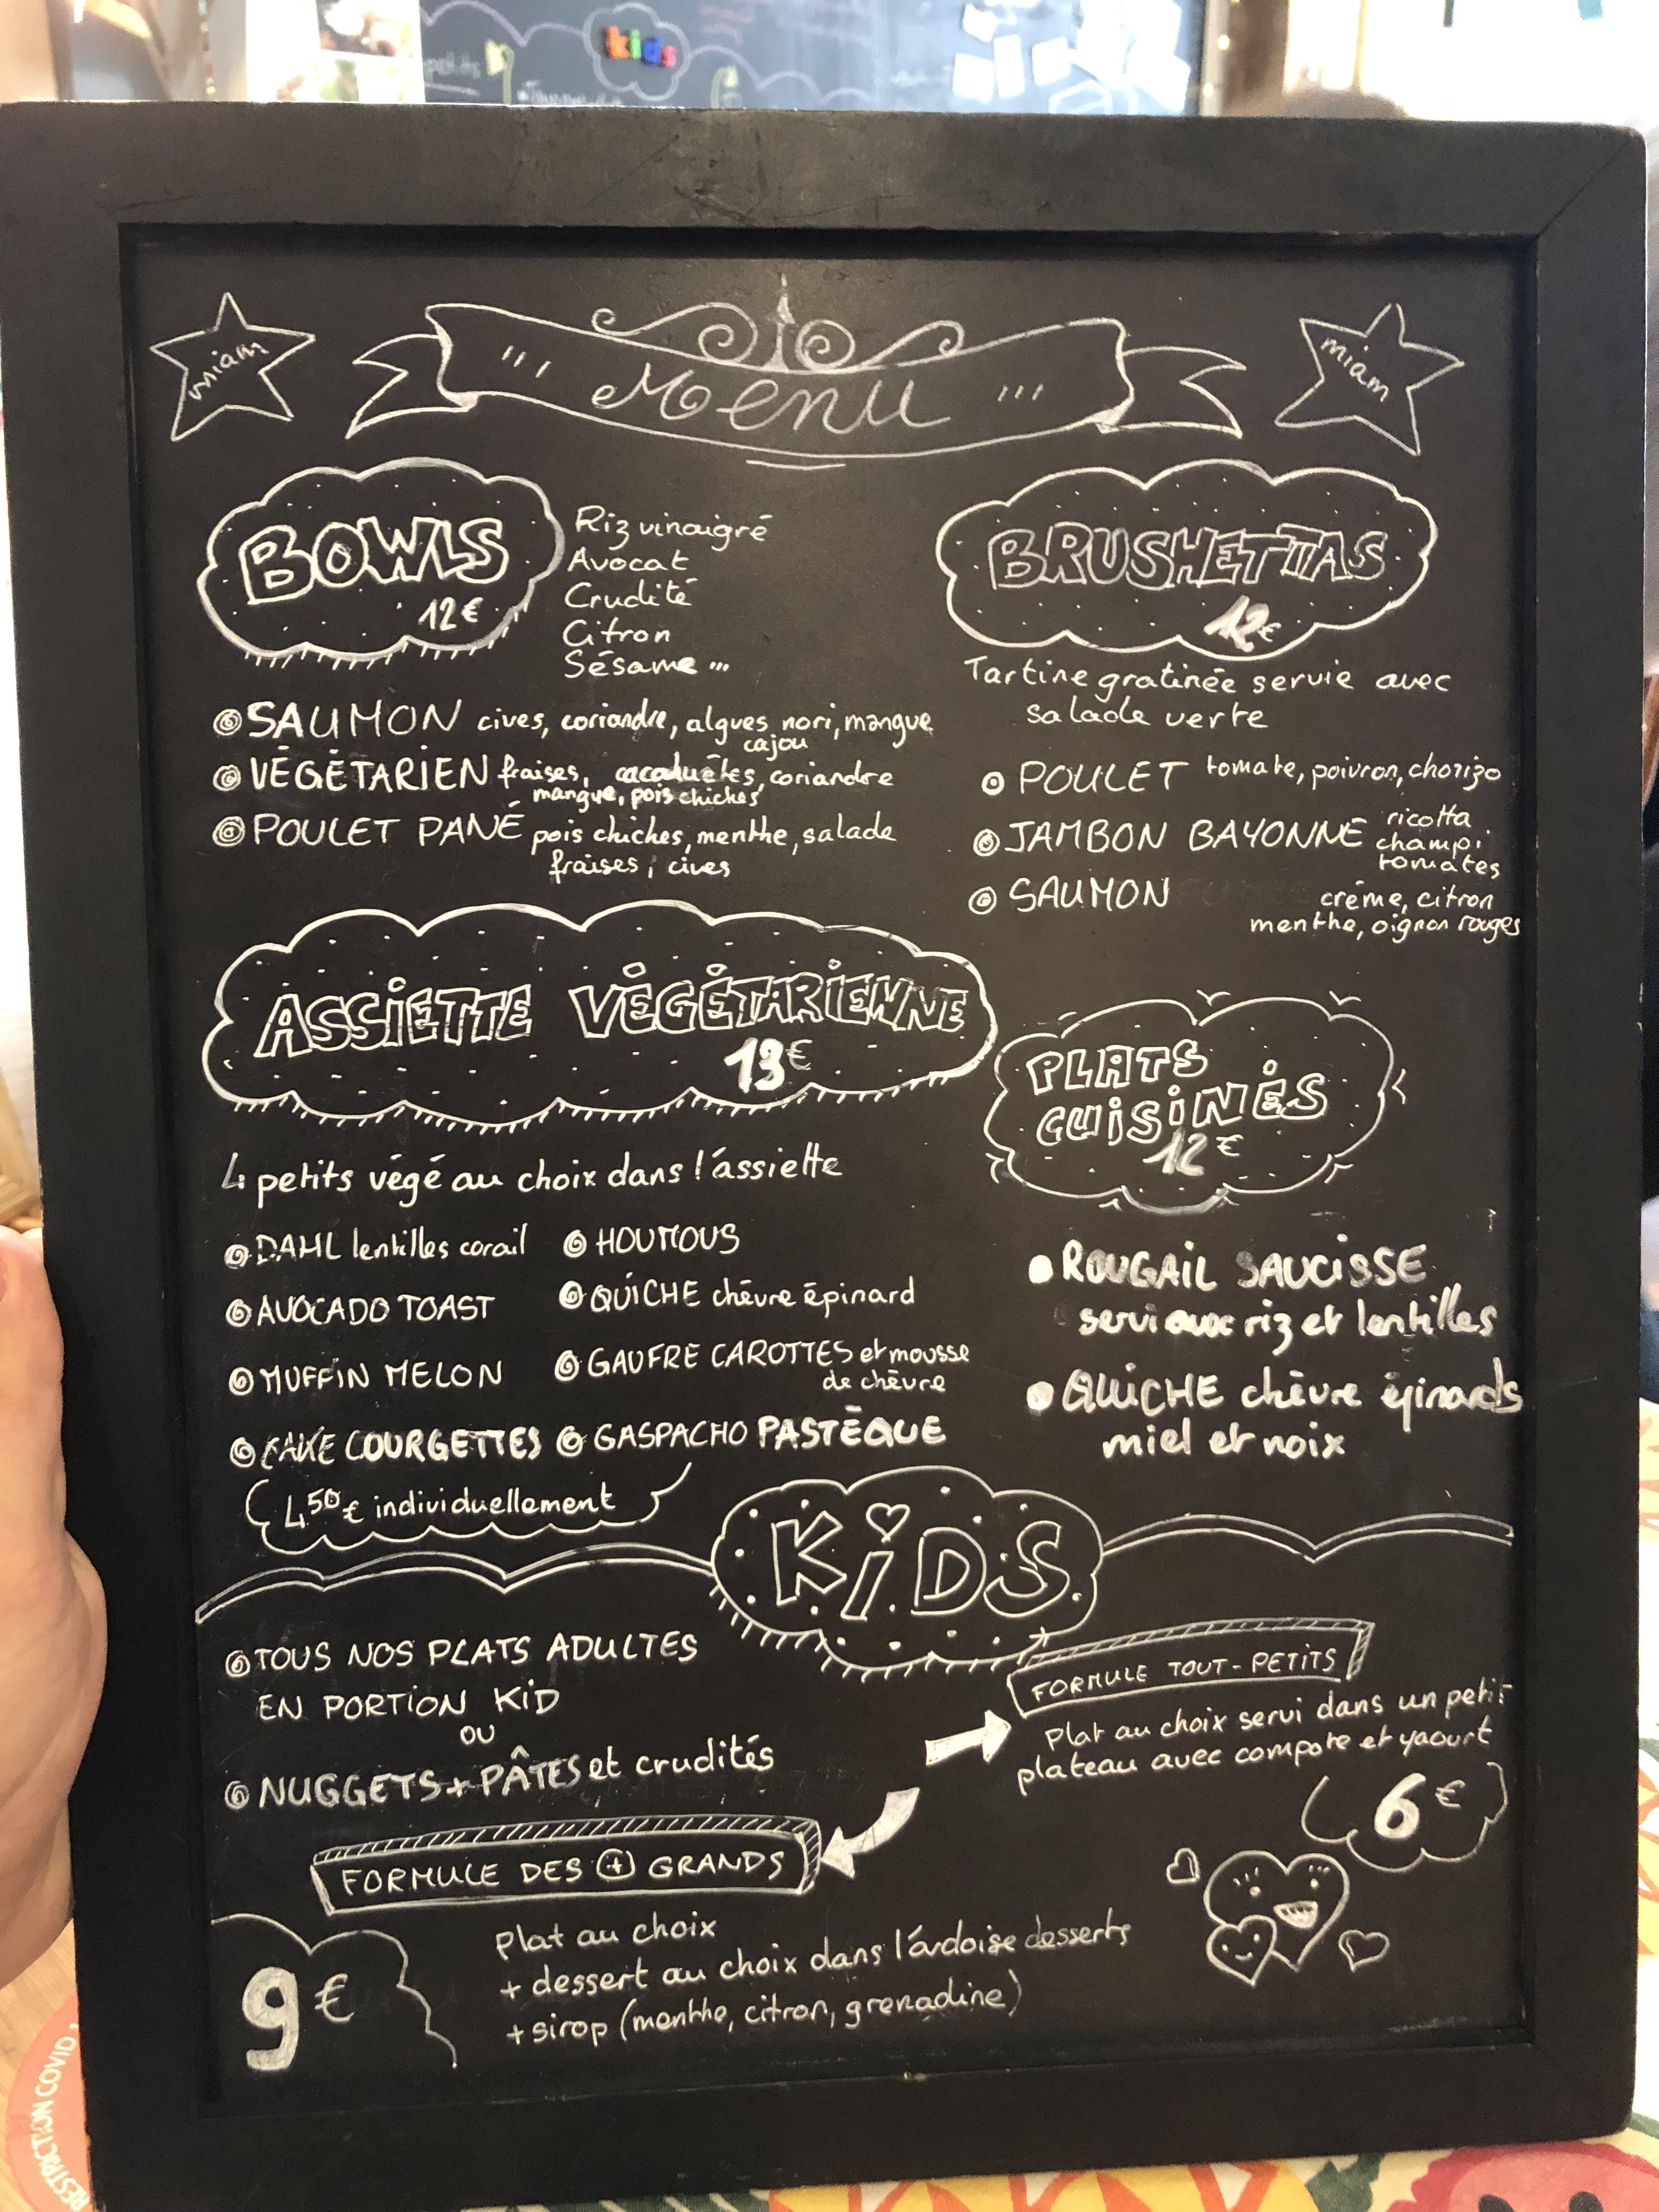 kids
miam
Menu
miam
BOWLS
12€
Riz vinaigré
Avocat
Crudité
Citron
Sésame ...
SAUMON cives, coriandre, algues nori, mangue
cajou
VÉGÉTARIEN fraises, cacahuètes, coriandre
mangue, pois chiches
POULET PANÉ pois chiches, menthe, salade
fraises, cives
BRUSHETTAS
12€
Tartine gratinée servie avec
salade verte
POULET tomate, poivron, chorizo
JAMBON BAYONNE ricotta
champi.
tomates
SAUMON crème, citron
menthe, oignon rouges
ASSIETTE VÉGÉTARIENNE
13€
4 petits végé au choix dans l'assiette
DAHL lentilles corail
HOUMOUS
AVOCADO TOAST
QUICHE chèvre épinard
MUFFIN MELON
GAUFRE CAROTTES et mousse
de chèvre
CAKE COURGETTES
GASPACHO PASTÈQUE
4,50€ individuellement
PLATS
CUISINÉS
12€
ROUGAIL SAUCISSE
servi avec riz et lentilles
QUICHE chèvre épinards
miel et noix
KiDS
TOUS NOS PLATS ADULTES
EN PORTION KID
OU
NUGGETS + PÂTES et crudités
FORMULE TOUT-PETITS
Plat au choix servi dans un petit
plateau avec compote et yaourt
6€
FORMULE DES + GRANDS
9€
plat au choix
+ dessert au choix dans l'ardoise desserts
+ sirop (menthe, citron, grenadine)
RESTRICTION COVID